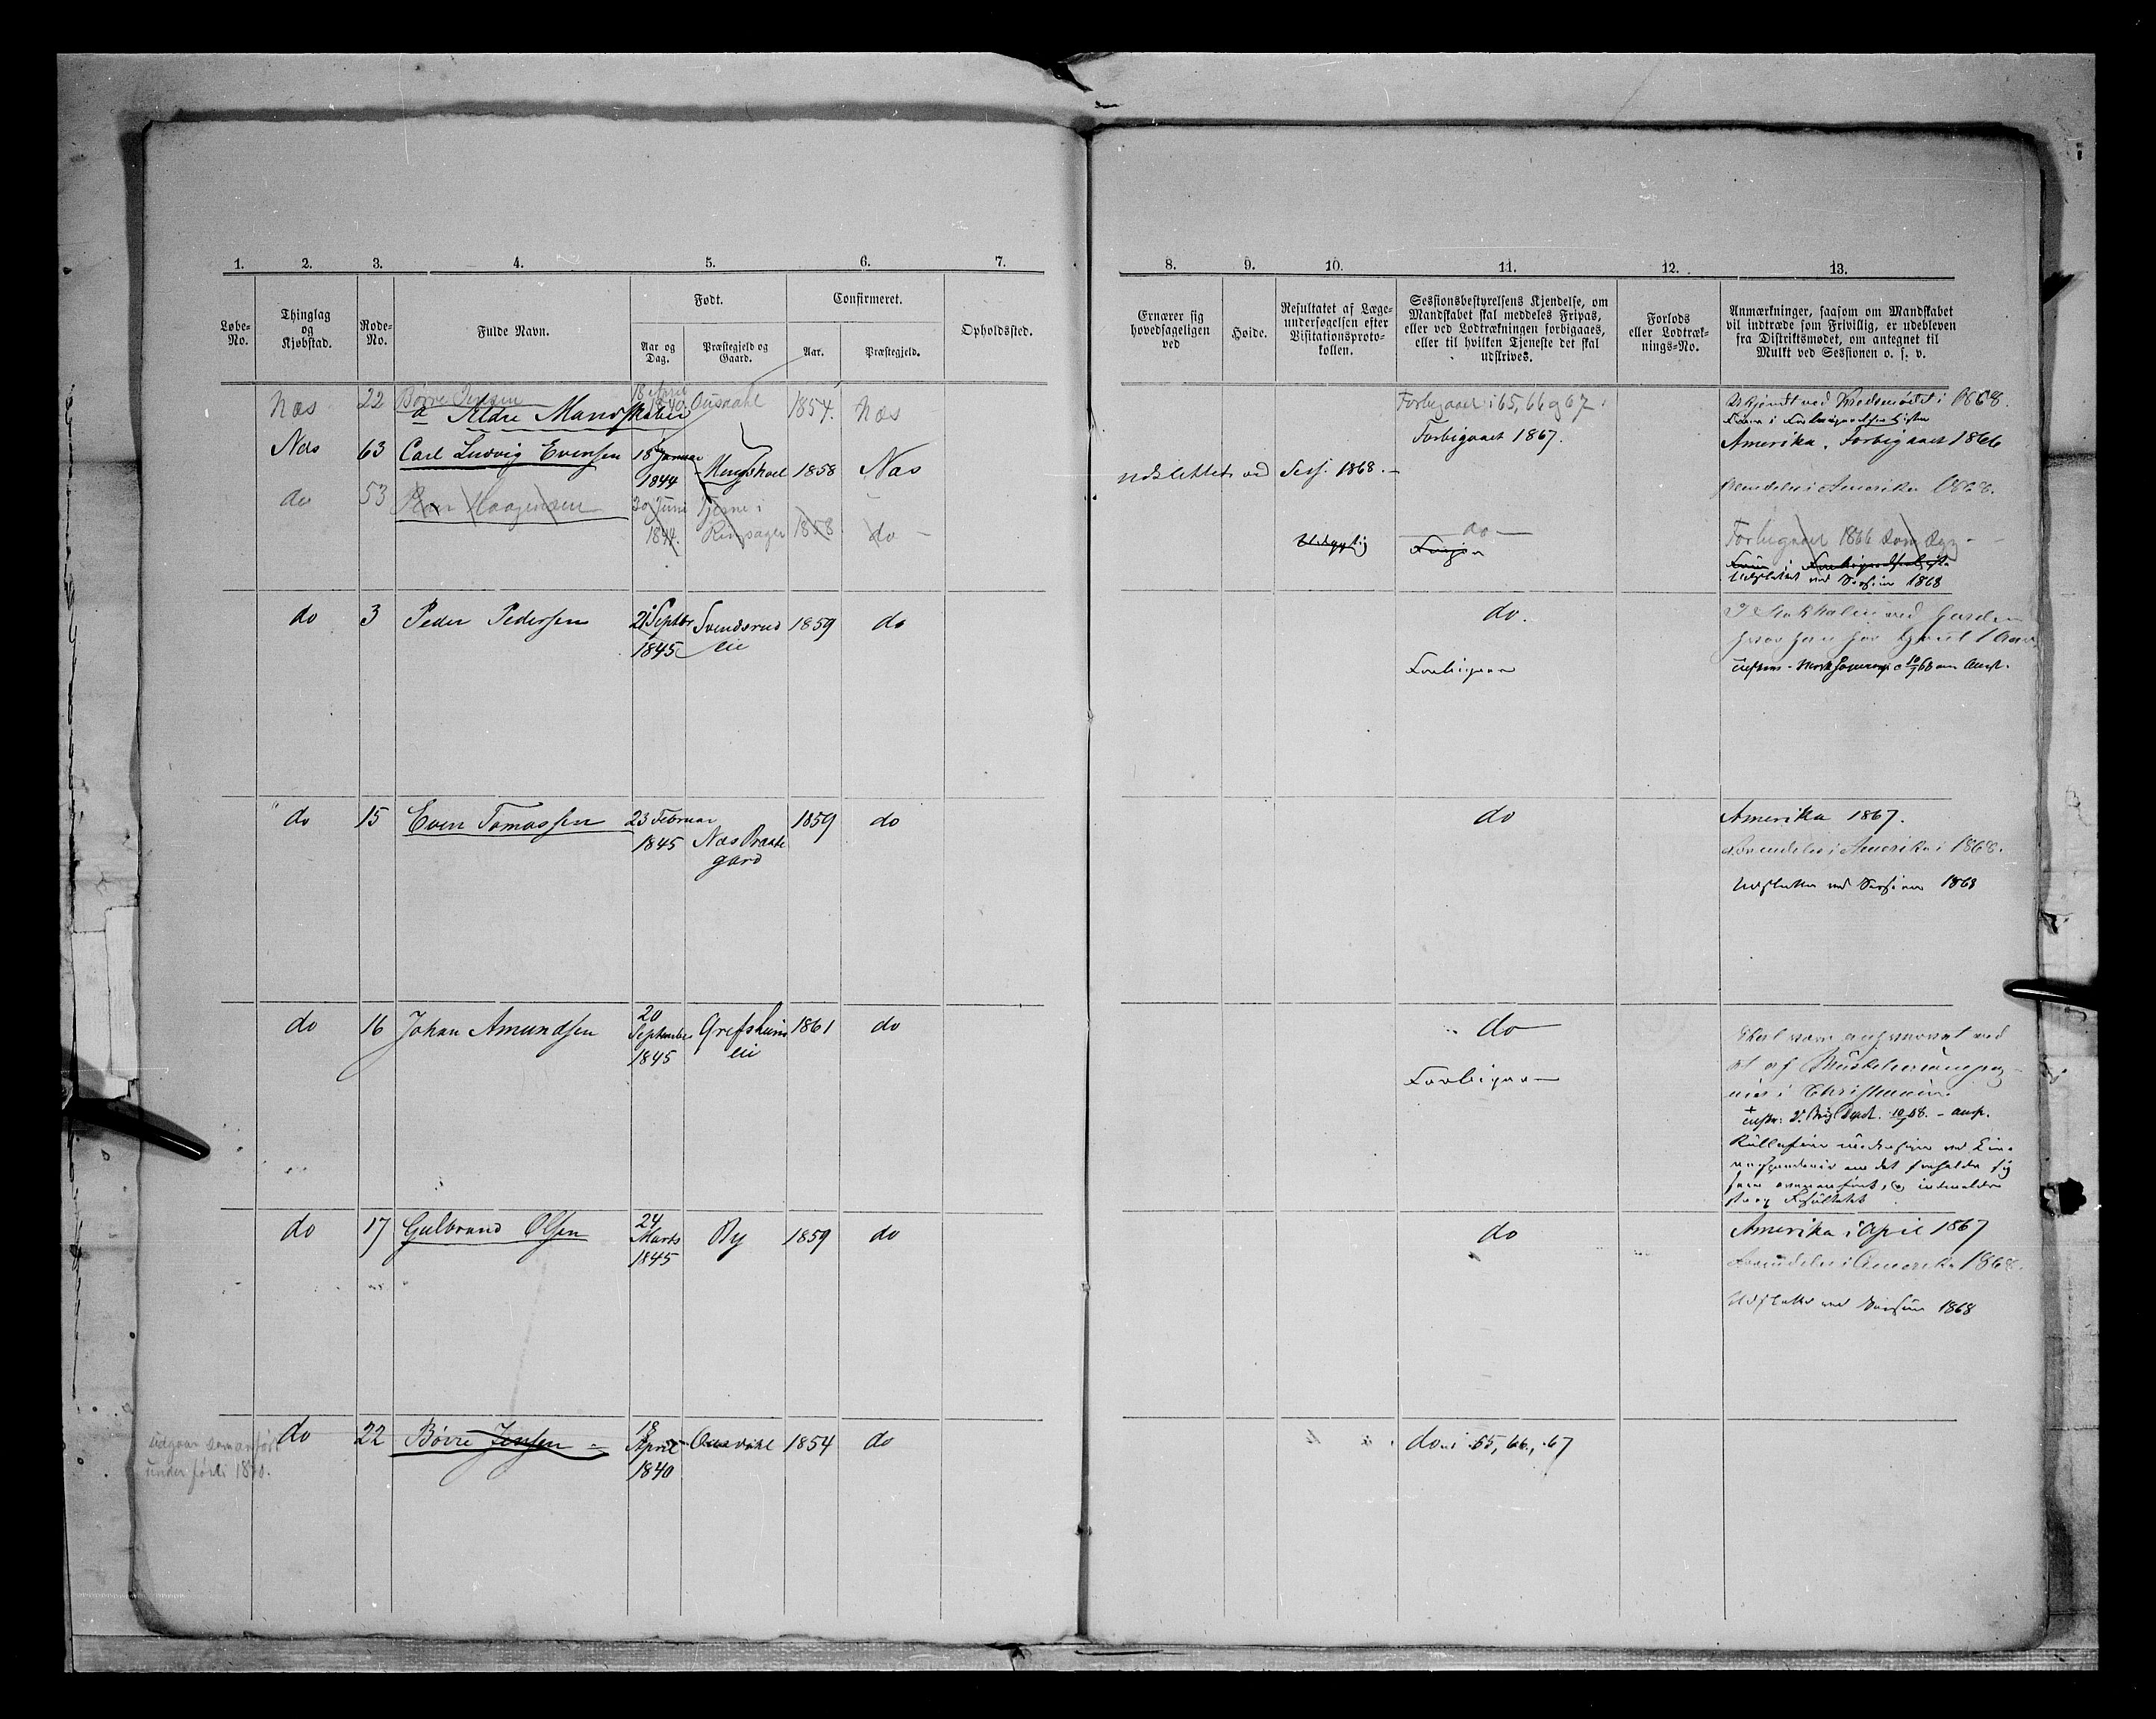 1. 2. 3. 4. 5. 6. 7.
Løbe-No.
Thinglag og Kjøbstad.
Rode-No.
Fulde Navn.
Født.
Aar og Dag.
Præstegjeld og Gaard.
Confirmeret.
Aar.
Præstegjeld.
Opholdssted.
Næs 22 Børre Jensen 18 April 1840 Ousdahl 1854. Næs
a Ældre Mandskaber
Næs 63 Carl Ludvig Evensen 18 Januar 1844 1858 Næs
do 53 Haagensen 20 Juni 1844. Tjerne i Ringsager 1858 do
do 3 Peder Pedersen 21 Septbr 1845 Svendsrud eie 1859 do
do 15 Even Tomassen 23 Februar 1845 Næs Præste gard 1859 do
do 16 Johan Amundsen 20 September 1845 Grefsheim eie 1861 do
do 17 Gulbrand Olsen 24 Marts 1845 By 1859 do
udgaar som anført
under
do 22 Børre Jensen 18 April 1840 Ousdahl 1854 do
8. 9. 10. 11. 12. 13.
Ernærer sig hovedsageligen ved
Høide.
Resultatet af Læge-undersøgelsen efter Visitationsproto-kollen.
Sessionsbestyrelsens Kjendelse, om Mandskabet skal meddeles Fripas, eller ved Lodtrækningen forbigaaes, eller til hvilken Tjeneste det skal udskrives.
Forlods eller Lodtræk-nings-No.
Anmærkninger, saasom om Mandskabet vil indtræde som Frivillig, er udebleven fra Distriktsmødet, om antegnet til Mulkt ved Sessionen o. s. v.
Forbigaaet i 65, 66 og 67.
i 1868.
Forbigaaet 1867.
Amerika. Forbigaaet 1866
udslettet ved Sess. 1868.
Fremdeles i Amerika 1868.
do
Forbigaaet 1866 som syg
Udslettet ved Session 1868
do.
Forbigaaes
do
Amerika 1867.
Fremdeles i Amerika i 1868.
Udslettes ved Session 1868
do
Forbigaaes
Skal være ansat ved
et af
i Christiania.
do
Amerika i April 1867
Fremdeles i Amerika 1868.
Udslettes ved Session 1868
do i 65, 66, 67